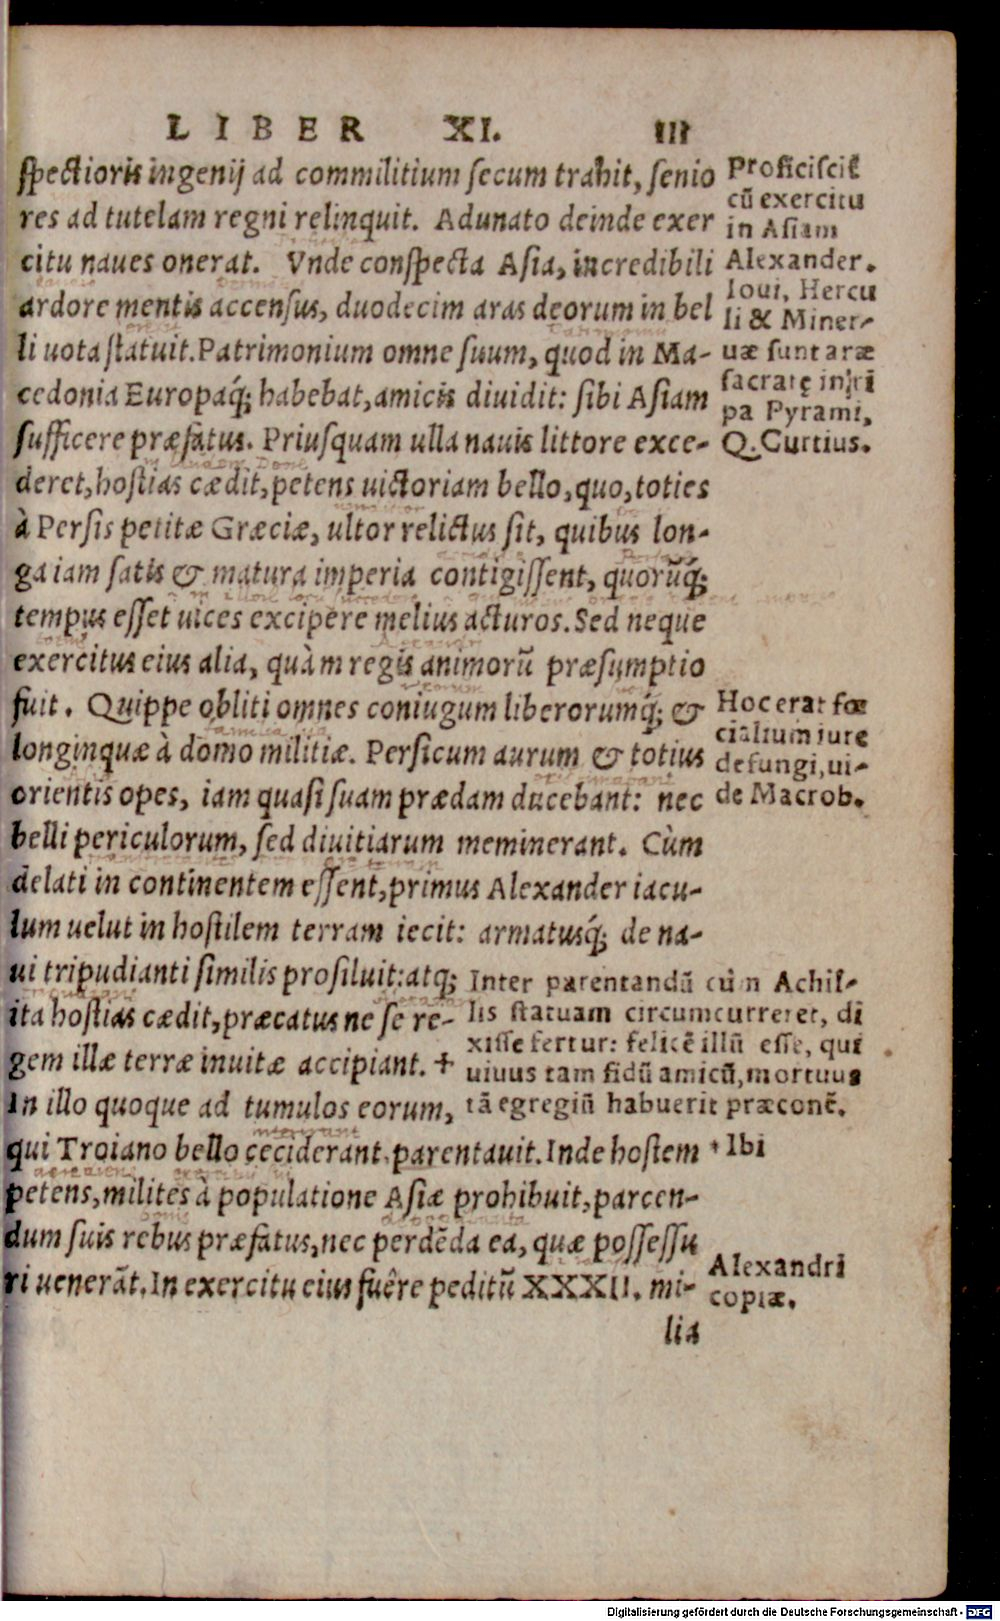 LIBER XI. 111
spectioris ingenij ad commilitium secum trahit, senio
res ad tutelam regni relinquit. Adunato deinde exer
citu naues onerat. Vnde conspecta Asia, incredibili
ardore mentis accensus, duodecim aras deorum in bel
li uota statuit. Patrimonium omne suum, quod in Ma-
cedonia Europaq́; habebat, amicis diuidit: sibi Asiam
sufficere præfatus. Priusquam ulla nauis littore exce-
deret, hostias cædit, petens uictoriam bello, quo, toties
à Persis petitæ Græciæ, ultor relictus sit, quibus lon-
ga iam satis & matura imperia contigissent, quorũq́;
tempus esset uices excipere melius acturos. Sed neque
exercitus eius alia, quàm regis animorũ præsumptio
fuit. Quippe obliti omnes coniugum liberorumq́; &
longinquæ à domo militiæ. Persicum aurum & totius
orientis opes, iam quasi suam prædam ducebant: nec
belli periculorum, sed diuitiarum meminerant. Cùm
delati in continentem essent, primus Alexander iacu-
lum uelut in hostilem terram iecit: armatusq́; de na-
ui tripudianti similis prosiluit: atq;
ita hostias cædit, præcatus ne se re-
gem illæ terræ inuitæ accipiant. +
In illo quoque ad tumulos eorum,
qui Troiano bello ceciderant, parentauit. Inde hostem
petens, milites à populatione Asiæ prohibuit, parcen-
dum suis rebus præfatus, nec perdẽda ea, quæ possessu
ri uenerãt. In exercitu eius fuêre peditũ XXXII. mi-
lia
Proficiscit
cũ exercitu
in Asiam
Alexander.
Ioui, Hercu
li & Miner-
uæ sunt aræ
sacratę in ri
pa Pyrami,
Q. Curtius.
Hoc erat fœ
cialium iure
defungi, ui-
de Macrob.
Inter parentandũ cùm Achil-
lis statuam circumcurreret, di
xisse fertur: felicẽ illũ esse, qui
uiuus tam fidũ amicũ, mortuus
tã egregiũ habuerit præconẽ.
+ Ibi
Alexandri
copiæ.
Digitalisierung gefördert durch die Deutsche Forschungsgemeinschaft - DFG